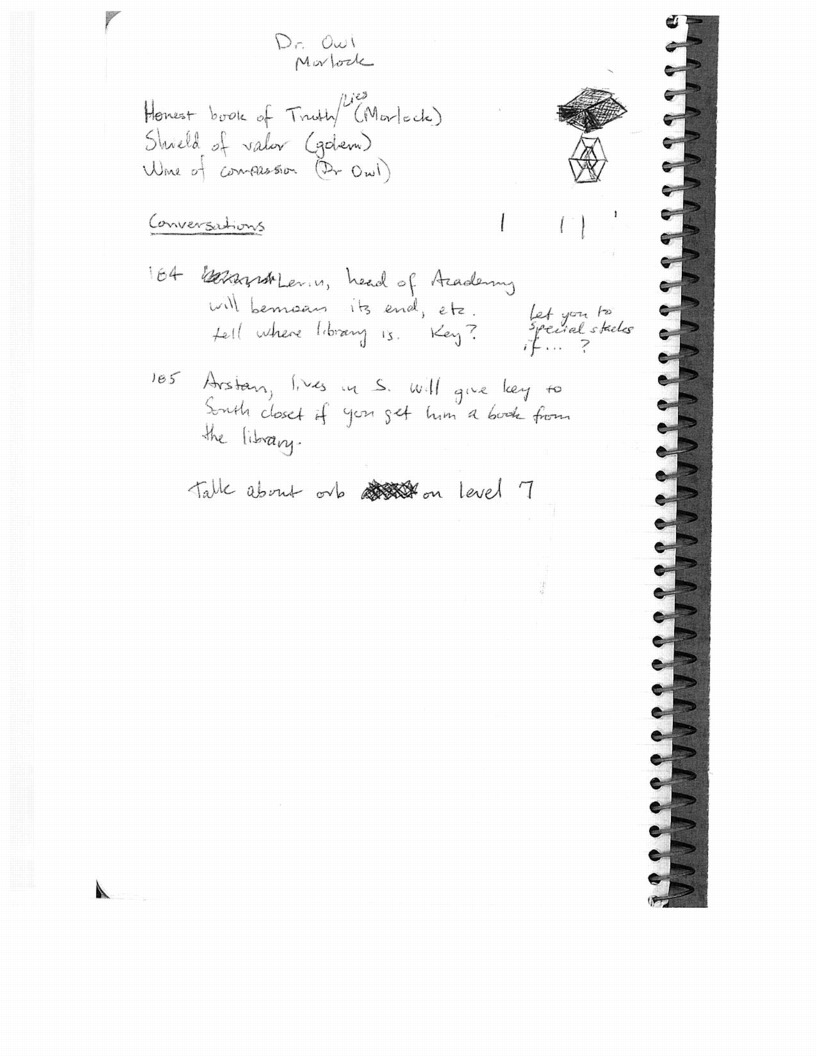 Dr. Owl
Morlock
Honest book of Truth/Lies (Morlock)
Shield of valor (golem)
Wine of compassion (Dr Owl)
Conversations
184 Levin, head of Academy
will bemoan its end, etc.
tell where library is. Key?
Let you to
special stacks
if... ?
185 Arstan, lives in S. will give key to
South closet if you get him a book from
the library.
Talk about orb on level 7